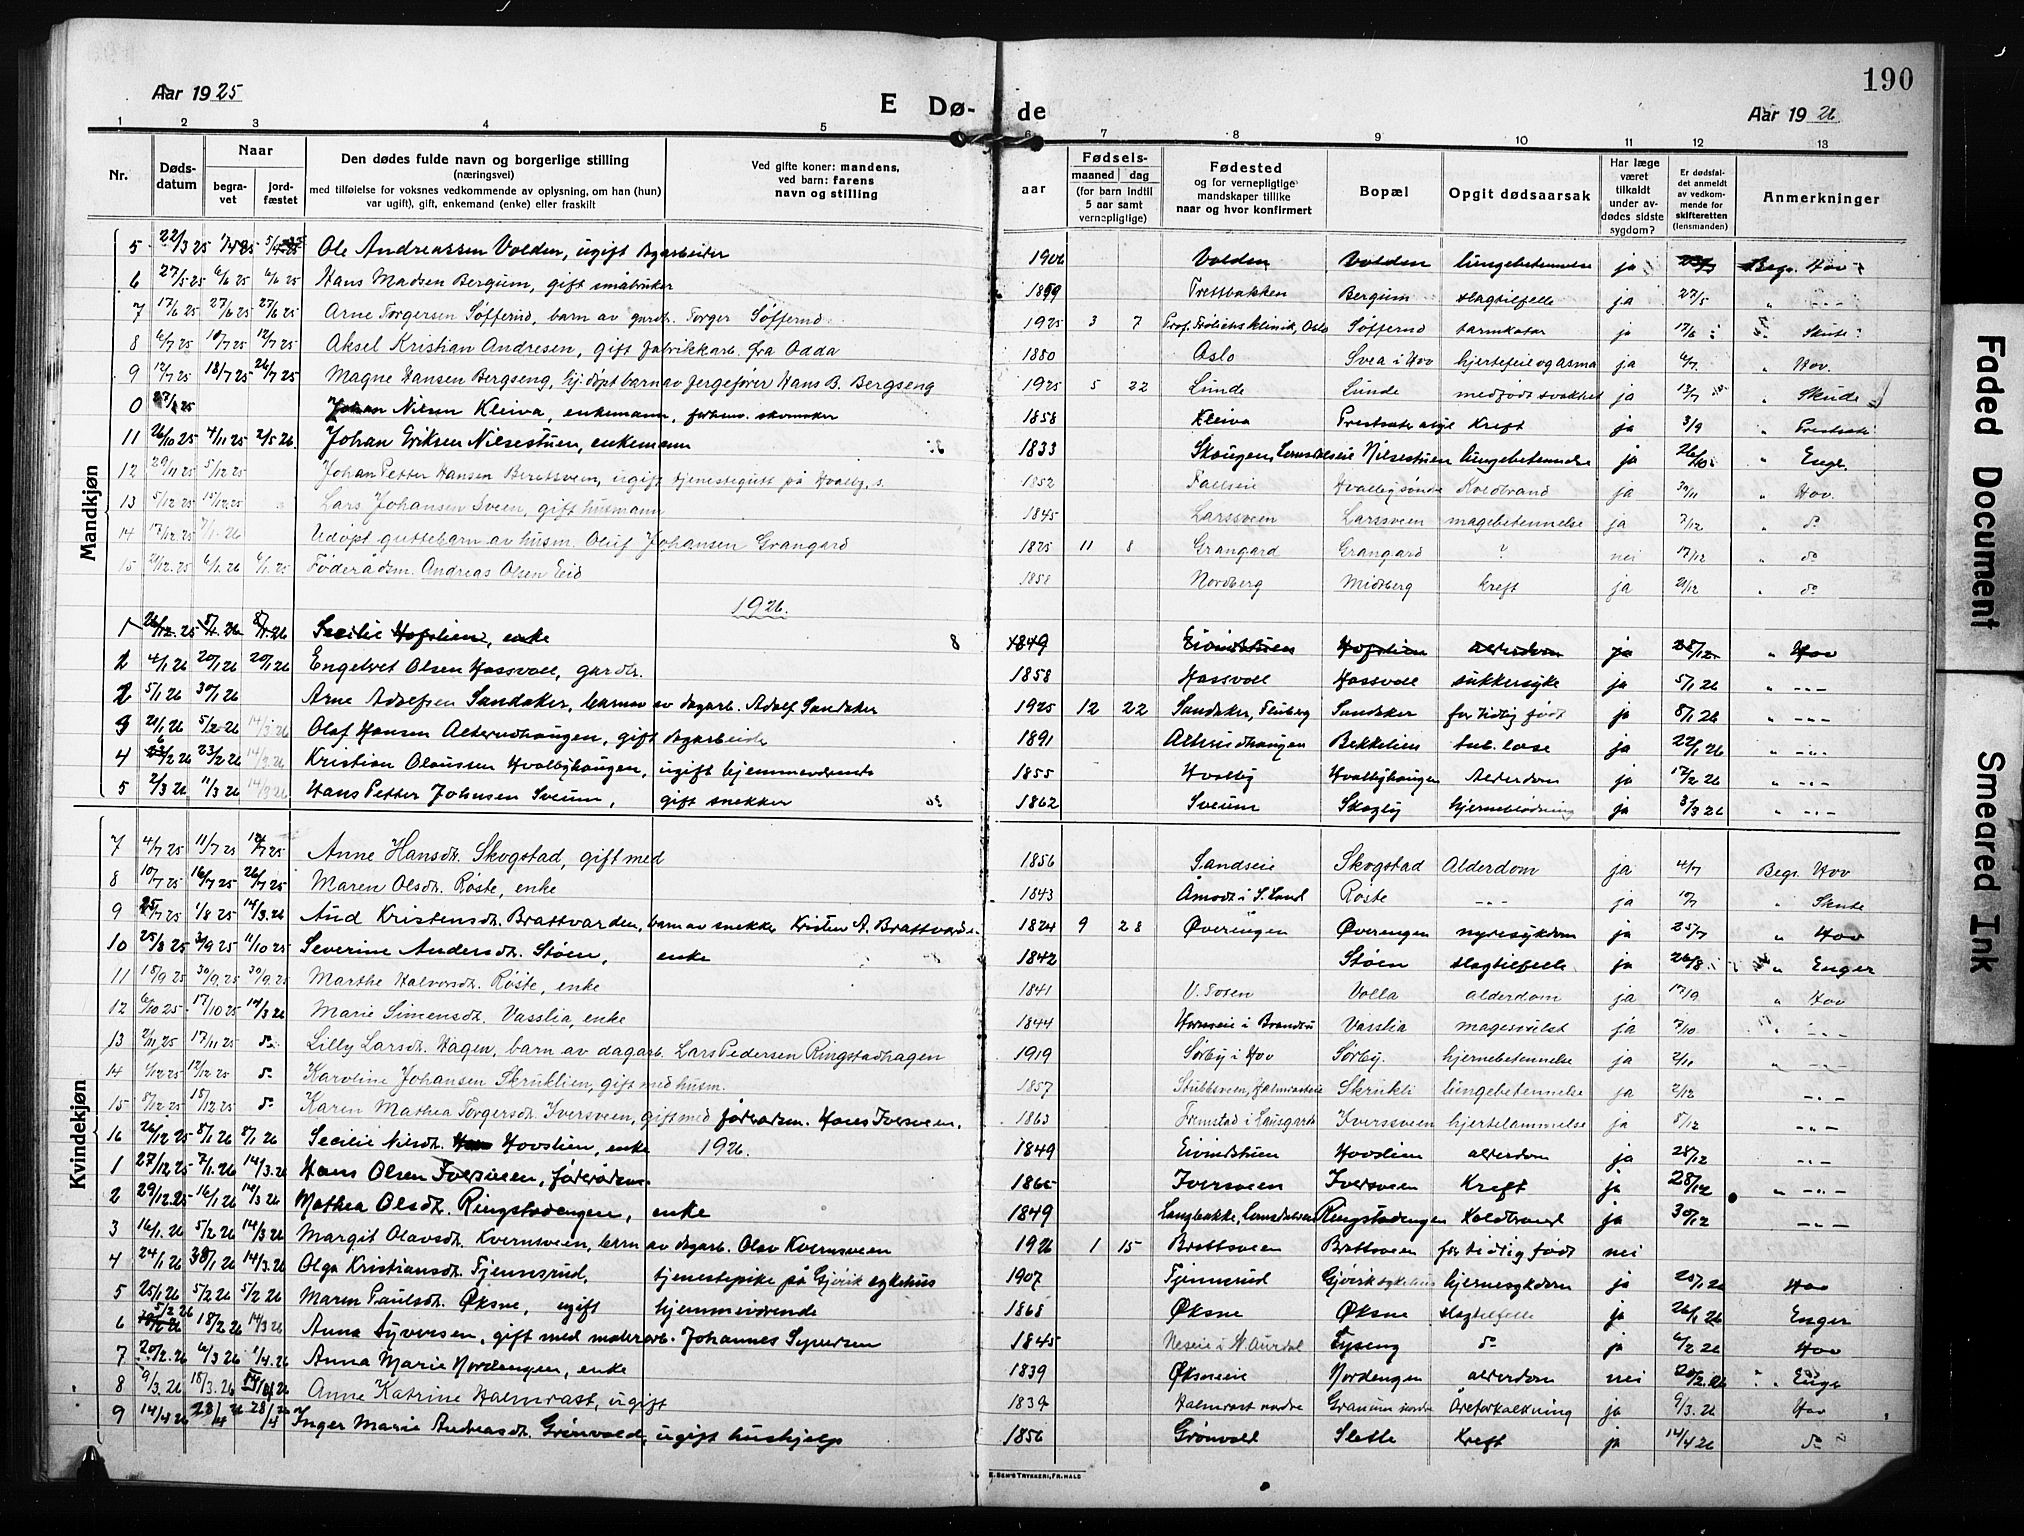 190
Aar 1925
E Dø- de
Aar 1926
1 2 3 4 5 6 7 8 9 10 11 12 13
Nr. Dødsdatum Naar begravet jordfæstet
Den dødes fulde navn og borgerlige stilling (næringsvei) med tilføielse for voksnes vedkommende av oplysning, om han (hun) var ugift), gift, enkemand (enke) eller fraskilt
Ved gifte koner: mandens, ved barn: farens navn og stilling
aar Fødsels- maaned dag (for barn indtil 5 aar samt vernepligtige)
Fødested og for vernepligtige mandskaper tillike naar og hvor konfirmert
Bopæl
Opgit dødsaarsak
Har læge været tilkaldt under avdødes sidste sygdom?
Er dødsfaldet anmeldt av vedkommende for skifteretten (lensmanden)
Anmerkninger
Mandkjøn
5 22/3 25 Ole Andreassen Volden, ugift dagarbeider 1906 Volden Volden lungebetennelse ja Begr. Hov
6 27/5 25 6/6 25 6/6 25 Hans Madsen Bergum, gift småbruker 1859 Trettbakken Bergum slagtilfelle ja 27/5 " -"-
7 17/6 25 27/6 25 27/6 25 Arne Torgersen Søffernd, barn av gardb. Torger Søffernd 1925 3 7 Prof. Frølichs klinik, Oslo Søffernd tarmkatar ja 17/6 " Skute
8 6/7 25 10/7 25 12/7 25 Aksel Kristian Andresen, gift fabrikkarb. fra Odda 1880 Oslo Svea i Hov hjertefeil og asma ja 6/7 " Hov.
9 12/7 25 18/7 25 26/7 25 Magne Hansen Bergseng, hj. døpt barn av fergefører Hans B. Bergseng 1925 5 22 Lunde Lunde medfødt svakhet ja 13/7 " Skude
0 Johan Nilsen Kleiva, enkemann, forhenv. skomaker 1858 Kleiva Kreft ja 3/9 "
11 26/10 25 4/11 25 2/5 26 Johan Eriksen Nilsestuen, enkemann 1833 Skougen, Nilsestuen lungebetennelse ja 26/10 " Enge.
12 29/11 25 5/12 25 Johan Petter Hansen Beretsveen, ugift tjenestegutt på Hvalby, s. 1852 Fallseie Hvalby søndre Koldbrand ja 30/11 " Hov.
13 5/12 25 12/12 25 Lars Johansen Sveen, gift husmann 1845 Larssveen Larssveen magebetennelse ja 7/12 " do
14 17/12.25 7/1.26 Udøpt guttebarn av husm. Oluf Johansen Grangard 1825 11 8 Grangard Grangard ? nei 17/12 " do
15 21/12.25 6/1.26 6/1.26 Føderådsm. Andreas Olsen Eid 1858 Nordberg Midtberg kreft ja 21/12 " do
1926.
1 26/12.25 8/1.26 8/1.26 Secilie Hofslien, enke 1849 Eivindstuen Hofslien alderdom ja 28/12 " Hov
2 4/1 26 20/1 26 20/1 26 Engebret Olsen Hassvoll, gardbr. 1858 Hassvoll Hassvoll sukkersyke ja 5/1 26 " -"-
2 5/1 26 30/1 26 Arne Adolfsen Sandaker, barn av dagarb. Adolf Sandaker 1925 12 22 Sandaker, Fluberg Sandaker for tidlig født ja 8/1 26 " -"-
3 21/1 26 5/2 26 14/3 26 Olaf Hansen Alterudhaugen, gift dagarbeider 1891 Alterudhaugen Bekkelien tub. lose ja 22/1 26 " -"-
4 23/2 26 14/3 26 Kristian Olaussen Hvalbyhaugen, ugift hjemmeværende 1855 Hvalby Hvalbyhaugen Alderdom ja 17/2 26 " -"-
5 2/3 26 11/3 26 14/3 26 Hans Petter Johnsen Sveum, gift snekker 1862 Sveum Skogly hjerneblødning ja 3/3 26 " -"-
Kvindekjøn
7 4/7 25 11/7 25 12/7 25 Anne Hansdt. Skogstad, gift med 1856 Sandseie Skogstad Alderdom ja 4/7 Begr. Hov
8 10/7 25 16/7 25 26/7 25 Maren Olsdt. Røste, enke 1843 Åmodt i S. Land Røste -"- ja 10/7 " Skute
9 25/7 25 1/8 25 14/3.26 Aud Kristensdt. Brattvarden, barn av snekker Kristen A. Brattvarden 1824 9 28 Øveringen Øverengen nyresykdom ja 25/7 " Hov
10 25/8 25 3/9 25 11/10 25 Severine Andersdt. Støen, enke 1842 Støen slagtilfelle ja 26/8 " Enger
11 15/9 25 30/9 25 30/9 25 Marthe Halvorsdt. Røste, enke 1841 V. Toten Volla alderdom ja 17/9 " Hov
12 6/10 25 17/10 25 14/3 26 Marie Simensdt. Vasslia, enke 1844 i Brandbu Vasslia magesvulst ja 7/10 " -"-
13 2/11 25 17/11 25 do Lilly Larsdt. Hagen, barn av dagarb. Lars Pedersen Ringstadhagen 1919 Sørby i Hov Sørby. hjernebetennelse ja 2/11 " -"-
14 1/12 25 12/12 25 do Karoline Johansen Skruklien, gift med husm. 1857 Stubbsveen, Halmrasteie Skrukli lungebetennelse ja 2/12 -"-
15 8/12 25 15/12 25 do Karen Mathea Torgersdt. Iversveen, gift med føderådsm. Hans Iversveen. 1863 Fremstad i Iverssveen hjertelammelse ja 8/12 -"-
16 26/12 25 8/1 26 8/1 26 Secilie Nilsdt. Hovslien, enke 1926. 1849 Eivindstuen Hovslien alderdom ja 28/12 -"-
1 27/12.25 7/1.26 14/3.26 Hans Olsen Iversveen, føderådsm. Iversveen Iversveen Kreft ja 28/12 " -"-
2 29/12.25 16/1 26 14/3 26 Mathea Olsdt. Ringstadengen, enke 1849 Langbakke, Ringstadengen koldbrand ja 30/12 -"-
3 16/1.26 5/2 26 14/3 26 Margit Olavsdt. Kvernsveen, barn av dagarb. Olav Kvernsveen 1926 1 15 Brattsveen Brattsveen for tidlig født nei
4 24/1 26 30/1 26 14/3.26 Olga Kristiansdt. Tjennerud, tjenestepike på Gjøvik sykehus 1907 Tjennerud Gjøvik sykehus hjernesykdom ja 25/1 26 Hov
5 25/1 26 5/2 26 5/2 26 Maren Paulsdt. Øksne, ugift hjemmeværende 1868 Øksne Øksne slagtilfelle ja 26/1 26 Enger
6 5/2 26 18/2 26 14/3 26 Anna Syversen, gift med malerarb. Johannes Syversen 1845 Neseie i N. Aurdal Lyseng do ja 6/2 26 Hov
7 20/2.26 6/3 26 1/4.26 Anna Marie Nordengen, enke 1839 Øksneeie Nordengen alderdom nei 20/2.26 " Enge
8 9/3.26 18/3.26 Anne Katrine Halmrast, ugift 1839 Halmrast nordre Granum nordre Åreforkalkning ja 9/3.26 Hov
9 14/4 26 28/4 26 28/4 26 Inger Marie Andreasdt. Grønvold, ugift hushjelp 1856 Grønvold Slette Kreft ja 14/4 26 do
E. SEM'S TRYKKERI, FR.HALD
Faded Document
Smeared Ink